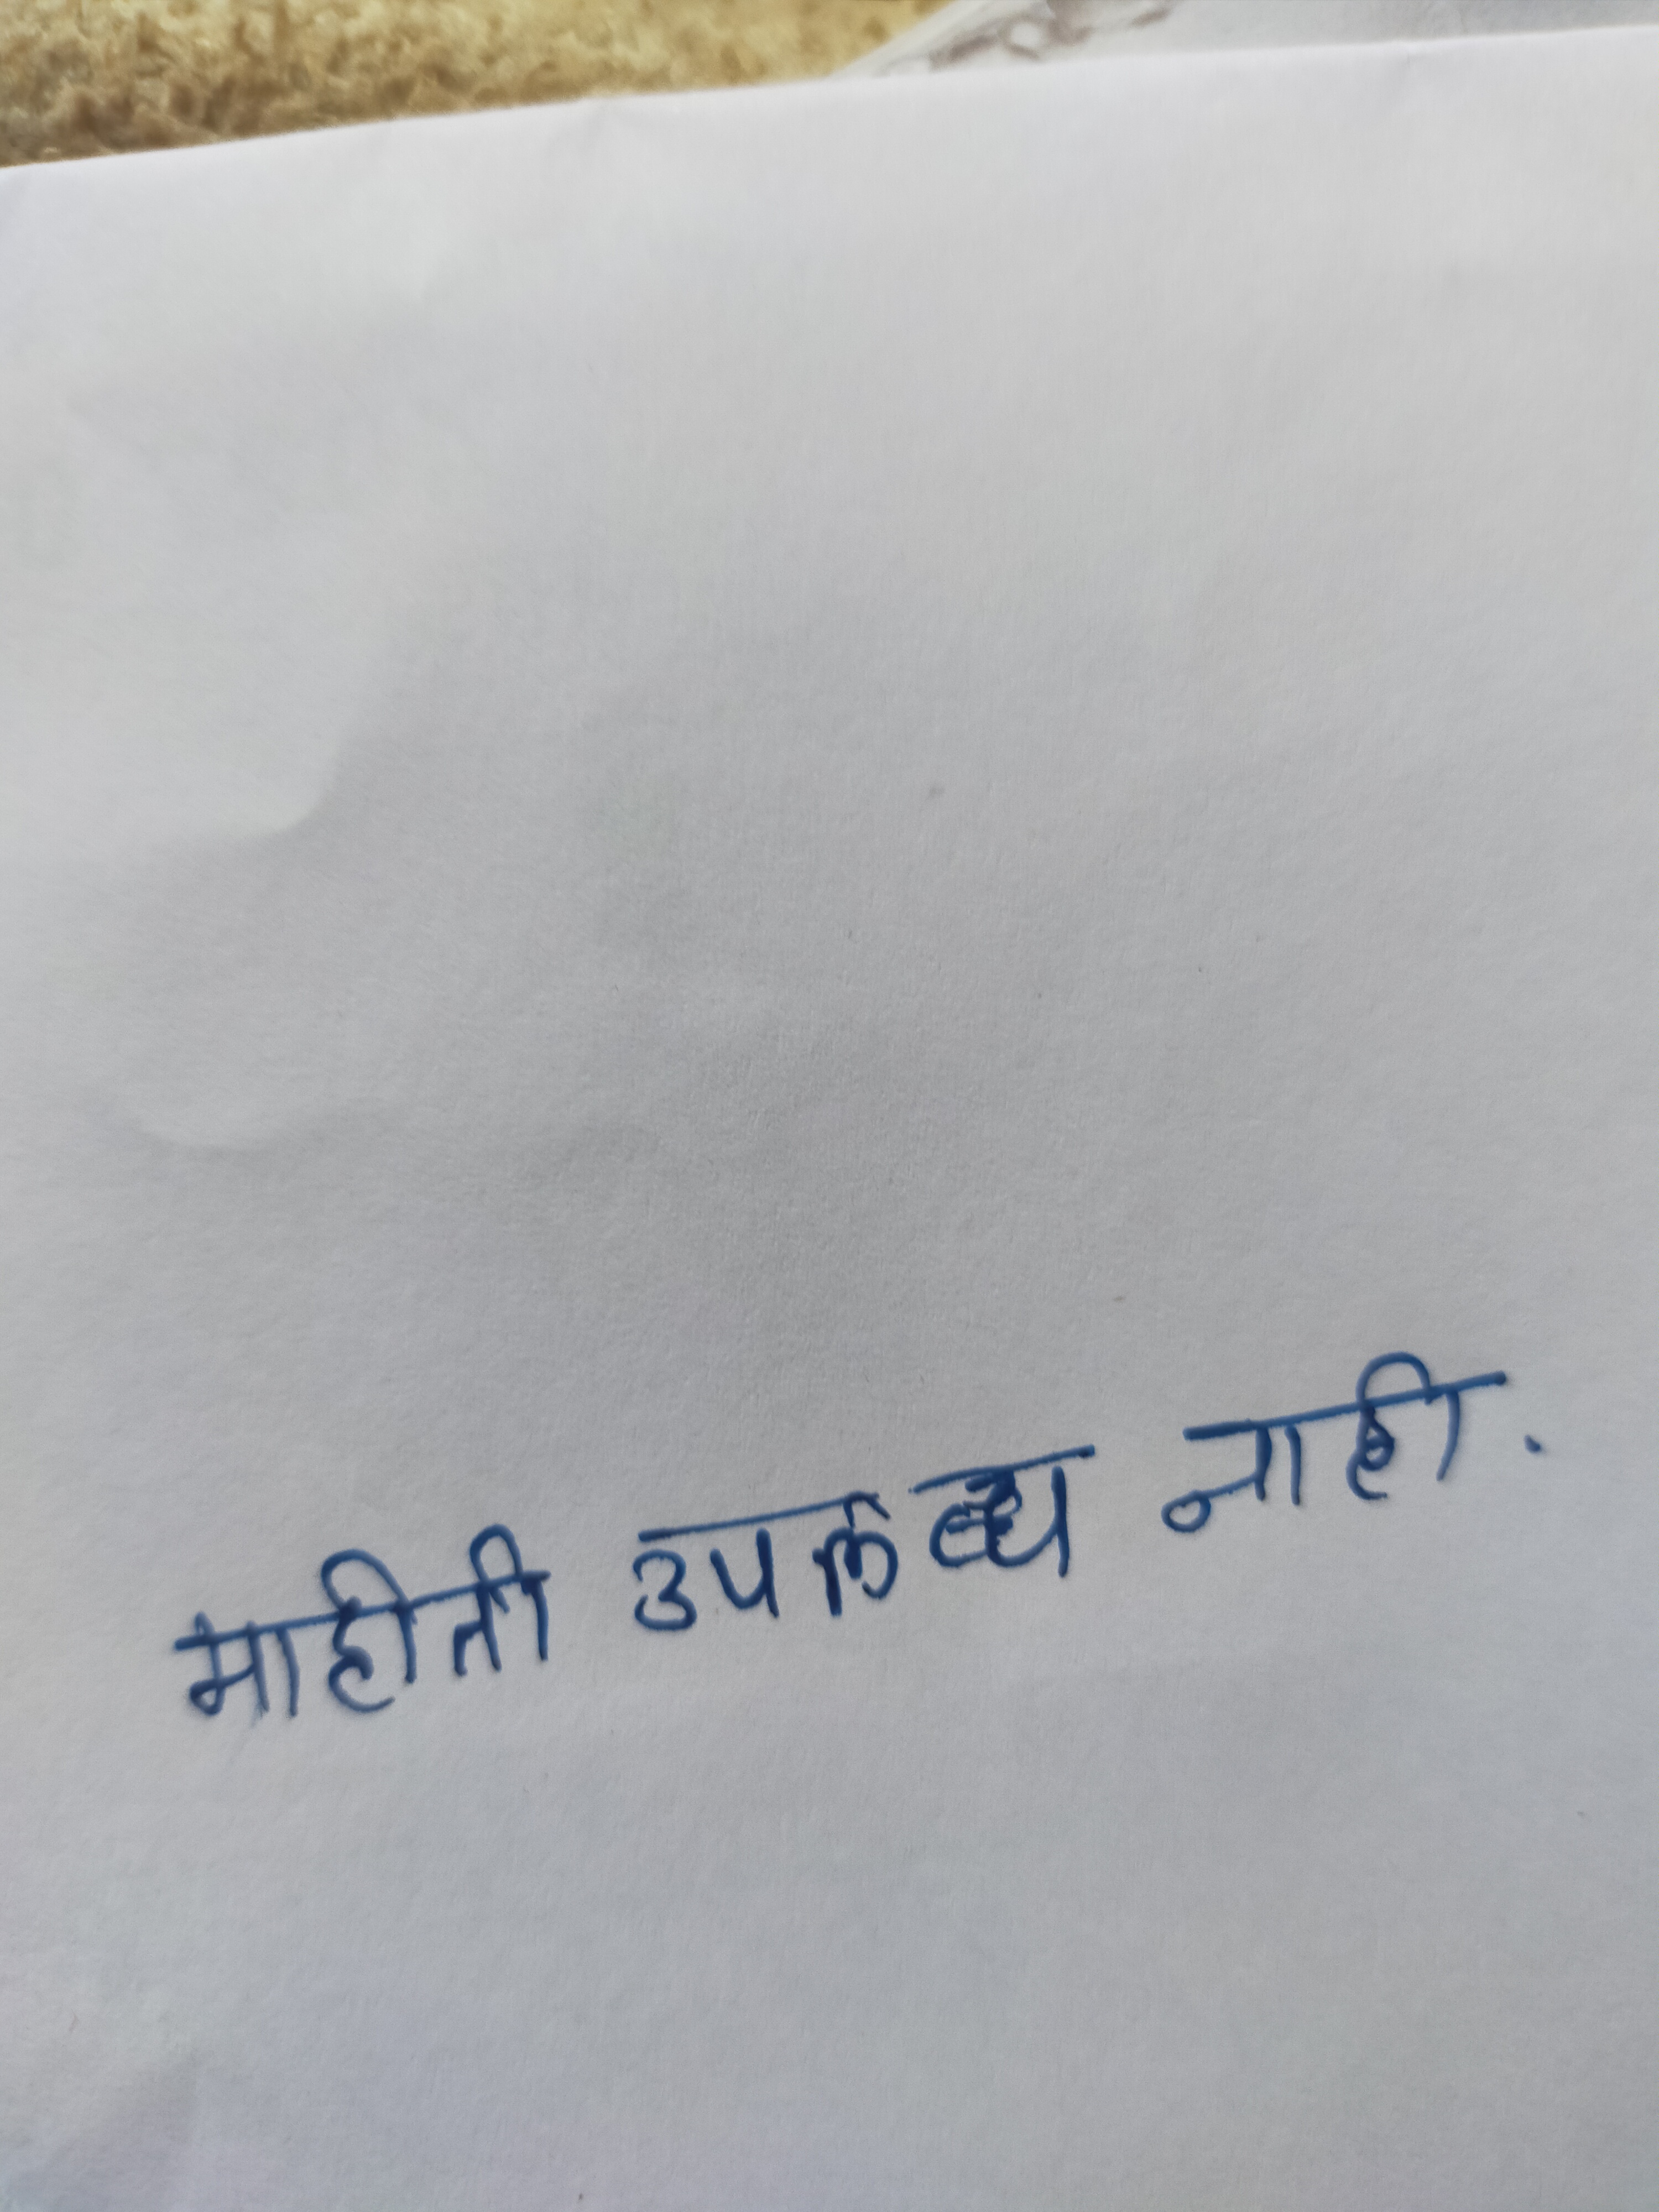 माहीती उपलब्ध नाही.